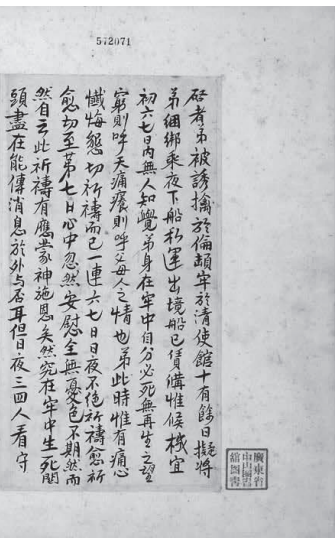 572071
启者弟被誘擒於倫頓牢於清使館十有餘日擬將
弟綑綁乘夜下船私運出境船已賃備惟候機宜
初六七日內無人知覺弟身在牢中自分必死無再生之望
窮則呼天痛癢則呼父母人之情也弟此時惟有痛心
懺悔懇切祈禱而已一連六七日日夜不絕祈禱愈祈
愈切至第七日心中忽然安慰全無憂色不期然而
然自云此祈禱有應蒙神施恩矣然究在牢中生死關
頭盡在能傳消息於外與否耳但日夜三四人看守
廣東省
中山圖書
館圖書